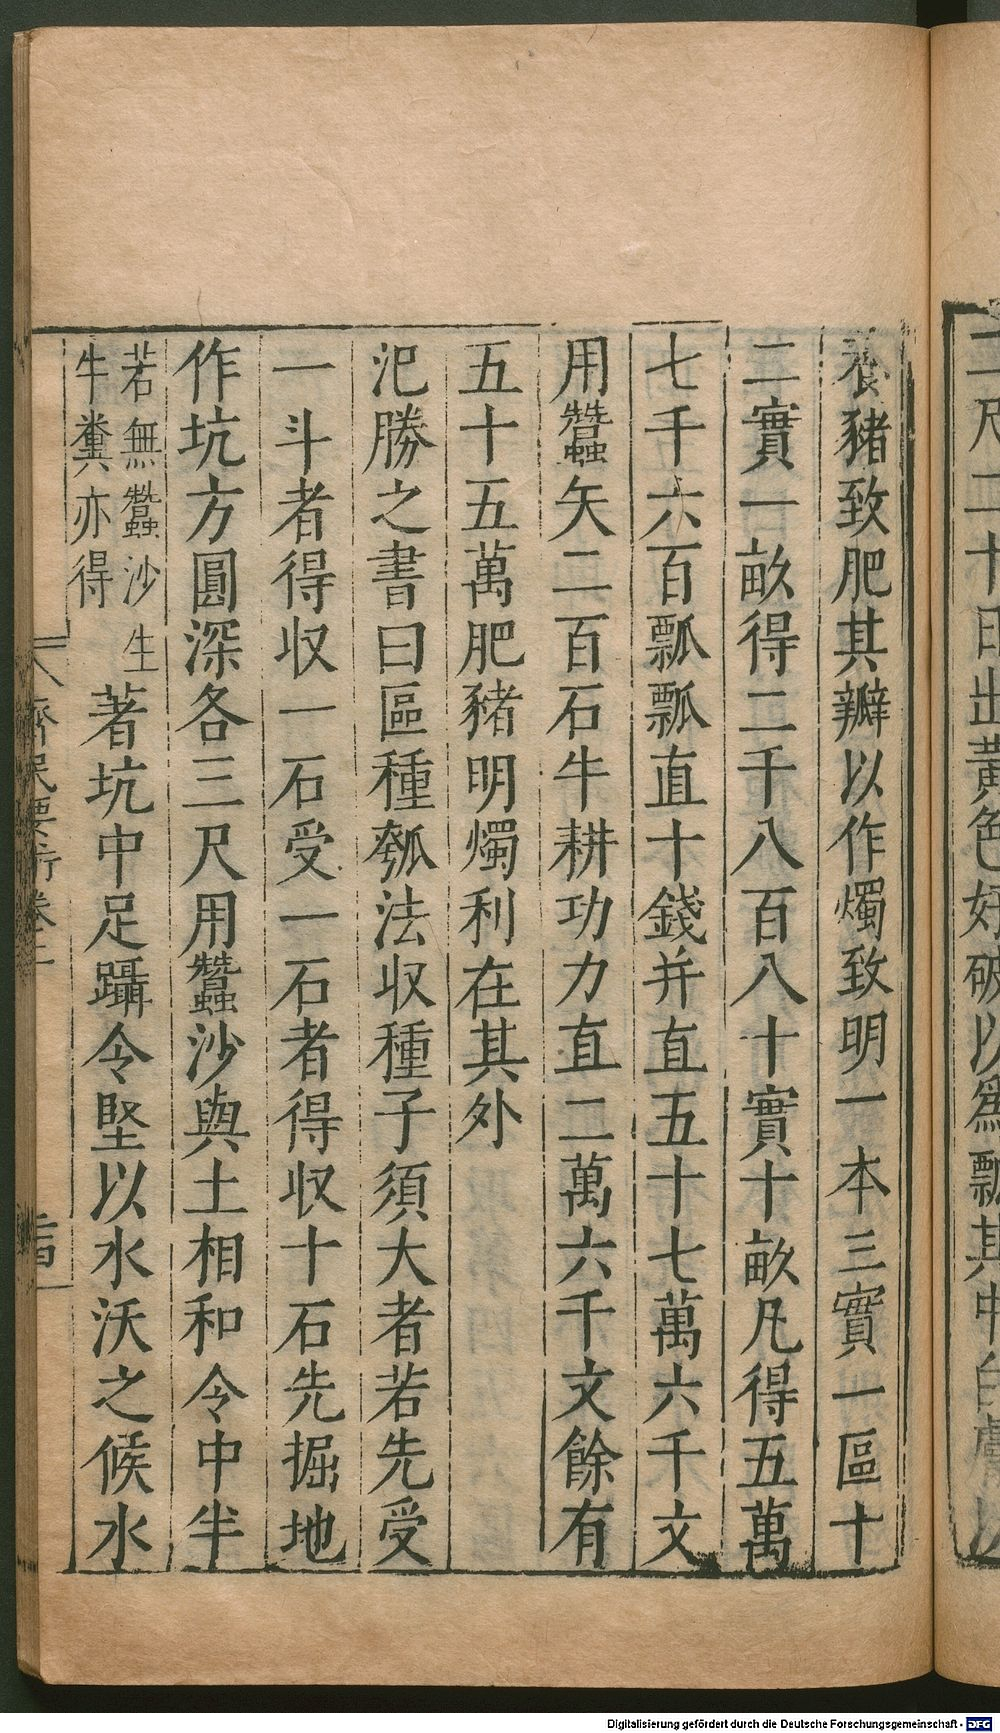 二尺二十日出黃色好破以爲瓢其中白膚以
養豬致肥其瓣以作燭致明一本三實一區十
二實一畝得二千八百八十實十畝凡得五萬
七千六百瓢瓢直十錢并直五十七萬六千文
用蠶矢二百石牛耕功力直二萬六千文餘有
五十五萬肥豬明燭利在其外
氾勝之書曰區種瓠法收種子須大者若先受
一斗者得收一石受一石者得收十石先掘地
作坑方圓深各三尺用蠶沙與土相和令中半
若無蠶沙生
牛糞亦得
著坑中足躡令堅以水沃之候水
齊民要術卷二
Digitalisierung gefördert durch die Deutsche Forschungsgemeinschaft - DFG